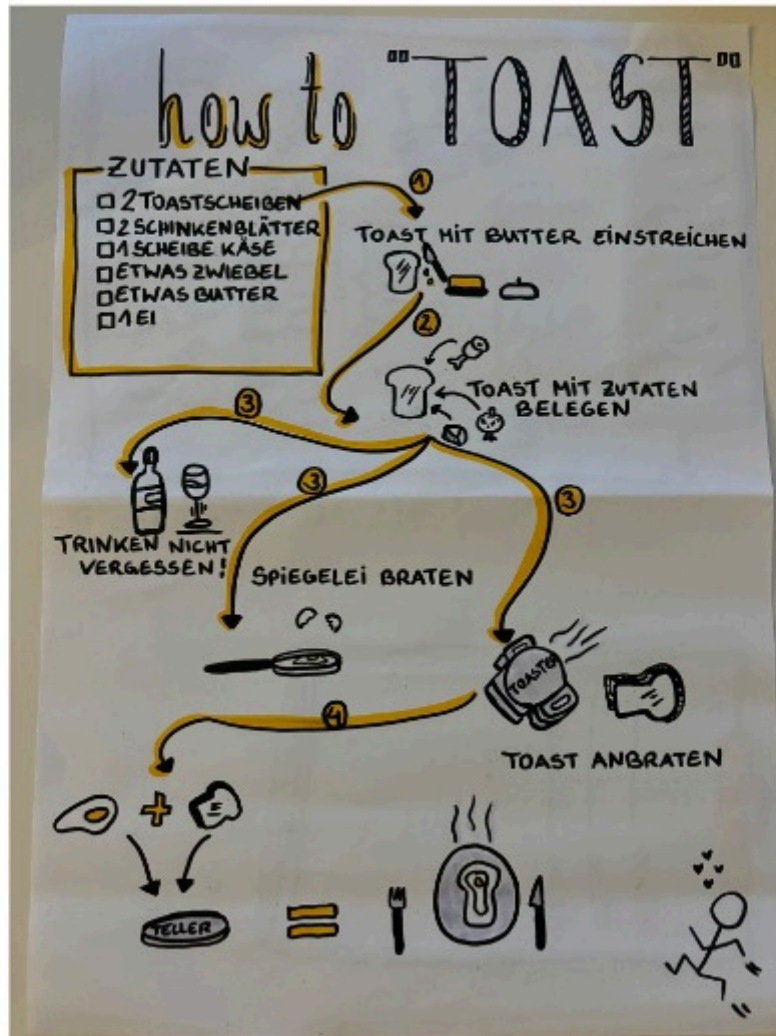 how to "TOAST"
ZUTATEN
2 TOASTSCHEIBEN
2 SCHINKENBLÄTTER
1 SCHEIBE KÄSE
ETWAS ZWIEBEL
ETWAS BUTTER
1 EI
1
TOAST MIT BUTTER EINSTREICHEN
2
TOAST MIT ZUTATEN
BELEGEN
3
TRINKEN NICHT
VERGESSEN!
3
SPIEGELEI BRATEN
3
TOASTER
TOAST ANBRATEN
4
+
TELLER
=